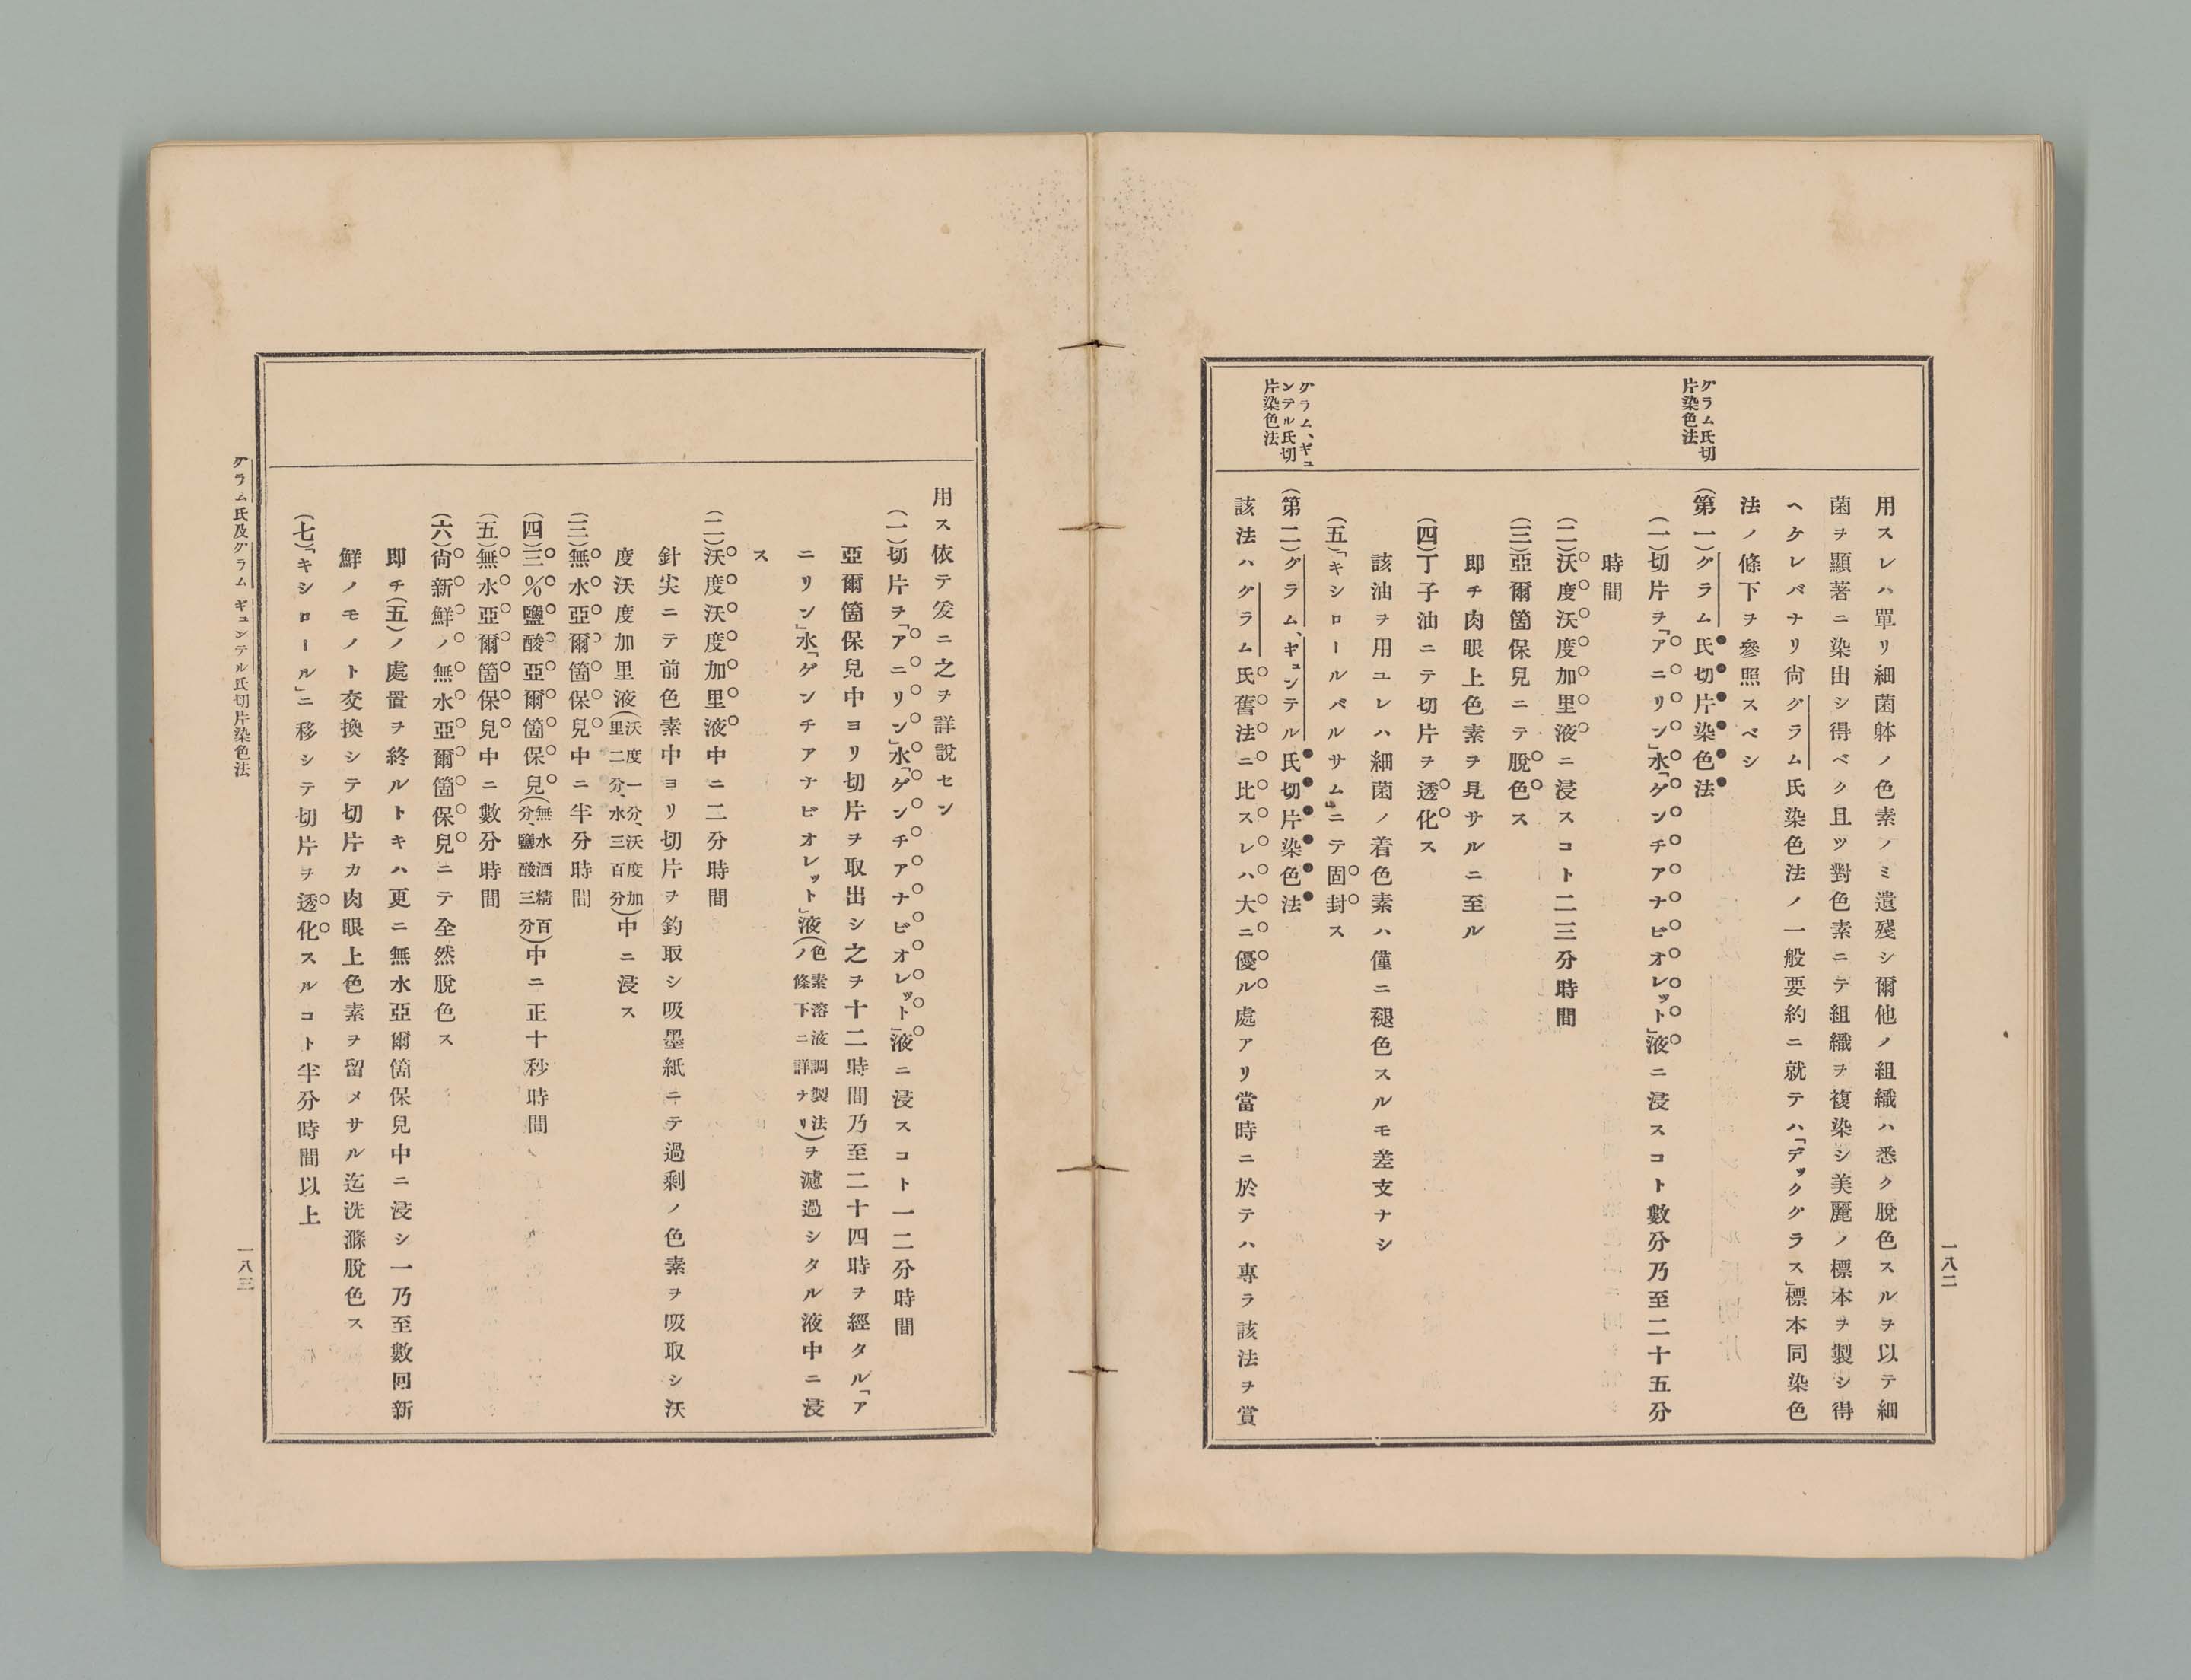 一八二
グラム氏切
片染色法
グラム、ギュ
ンテル氏切
片染色法
用スレハ單リ細菌躰ノ色素ノミ遺殘シ爾他ノ組織ハ悉ク脫色スルヲ以テ細
菌ヲ顯著ニ染出シ得ベク且ツ對色素ニテ組織ヲ複染シ美麗ノ標本ヲ製シ得
ヘケレバナリ尙グラム氏染色法ノ一般要約ニ就テハ「デックグラス」標本同染色
法ノ條下ヲ參照スベシ
(第一)グラム氏切片染色法
(一)切片ヲ「アニリン」水「ゲンチアナビオレット」液ニ浸スコト數分乃至二十五分
時間
(二)沃度沃度加里液ニ浸スコト二三分時間
(三)亞爾箇保兒ニテ脫色ス
即チ肉眼上色素ヲ見サルニ至ル
(四)丁子油ニテ切片ヲ透化ス
該油ヲ用ユレハ細菌ノ着色素ハ僅ニ褪色スルモ差支ナシ
(五)「キシロールバルサム」ニテ固封ス
(第二)グラム、ギュンテル氏切片染色法
該法ハグラム氏舊法ニ比スレハ大ニ優ル處アリ當時ニ於テハ專ラ該法ヲ賞
用ス依テ爰ニ之ヲ詳說セン
(一)切片ヲ「アニリン」水「ゲンチアナビオレット」液ニ浸スコト一二分時間
亞爾箇保兒中ヨリ切片ヲ取出シ之ヲ十二時間乃至二十四時ヲ經タル「ア
ニリン」水「ゲンチアナビオレット」液(色素溶液調製法ノ條下ニ詳ナリ)ヲ濾過シタル液中ニ浸
ス
(二)沃度沃度加里液中ニ二分時間
針尖ニテ前色素中ヨリ切片ヲ釣取シ吸墨紙ニテ過剩ノ色素ヲ吸取シ沃
度沃度加里液(沃度一分、沃度加里二分、水三百分)中ニ浸ス
(三)無水亞爾箇保兒中ニ半分時間
(四)三%鹽酸亞爾箇保兒(無水酒精百分、鹽酸三分)中ニ正十秒時間
(五)無水亞爾箇保兒中ニ數分時間
(六)尙新鮮ノ無水亞爾箇保兒ニテ全然脫色ス
即チ(五)ノ處置ヲ終ルトキハ更ニ無水亞爾箇保兒中ニ浸シ一乃至數回新
鮮ノモノト交換シテ切片カ肉眼上色素ヲ留メサル迄洗滌脫色ス
(七)「キシロール」ニ移シテ切片ヲ透化スルコト半分時間以上
グラム氏及グラム ギュンテル氏切片染色法
一八三